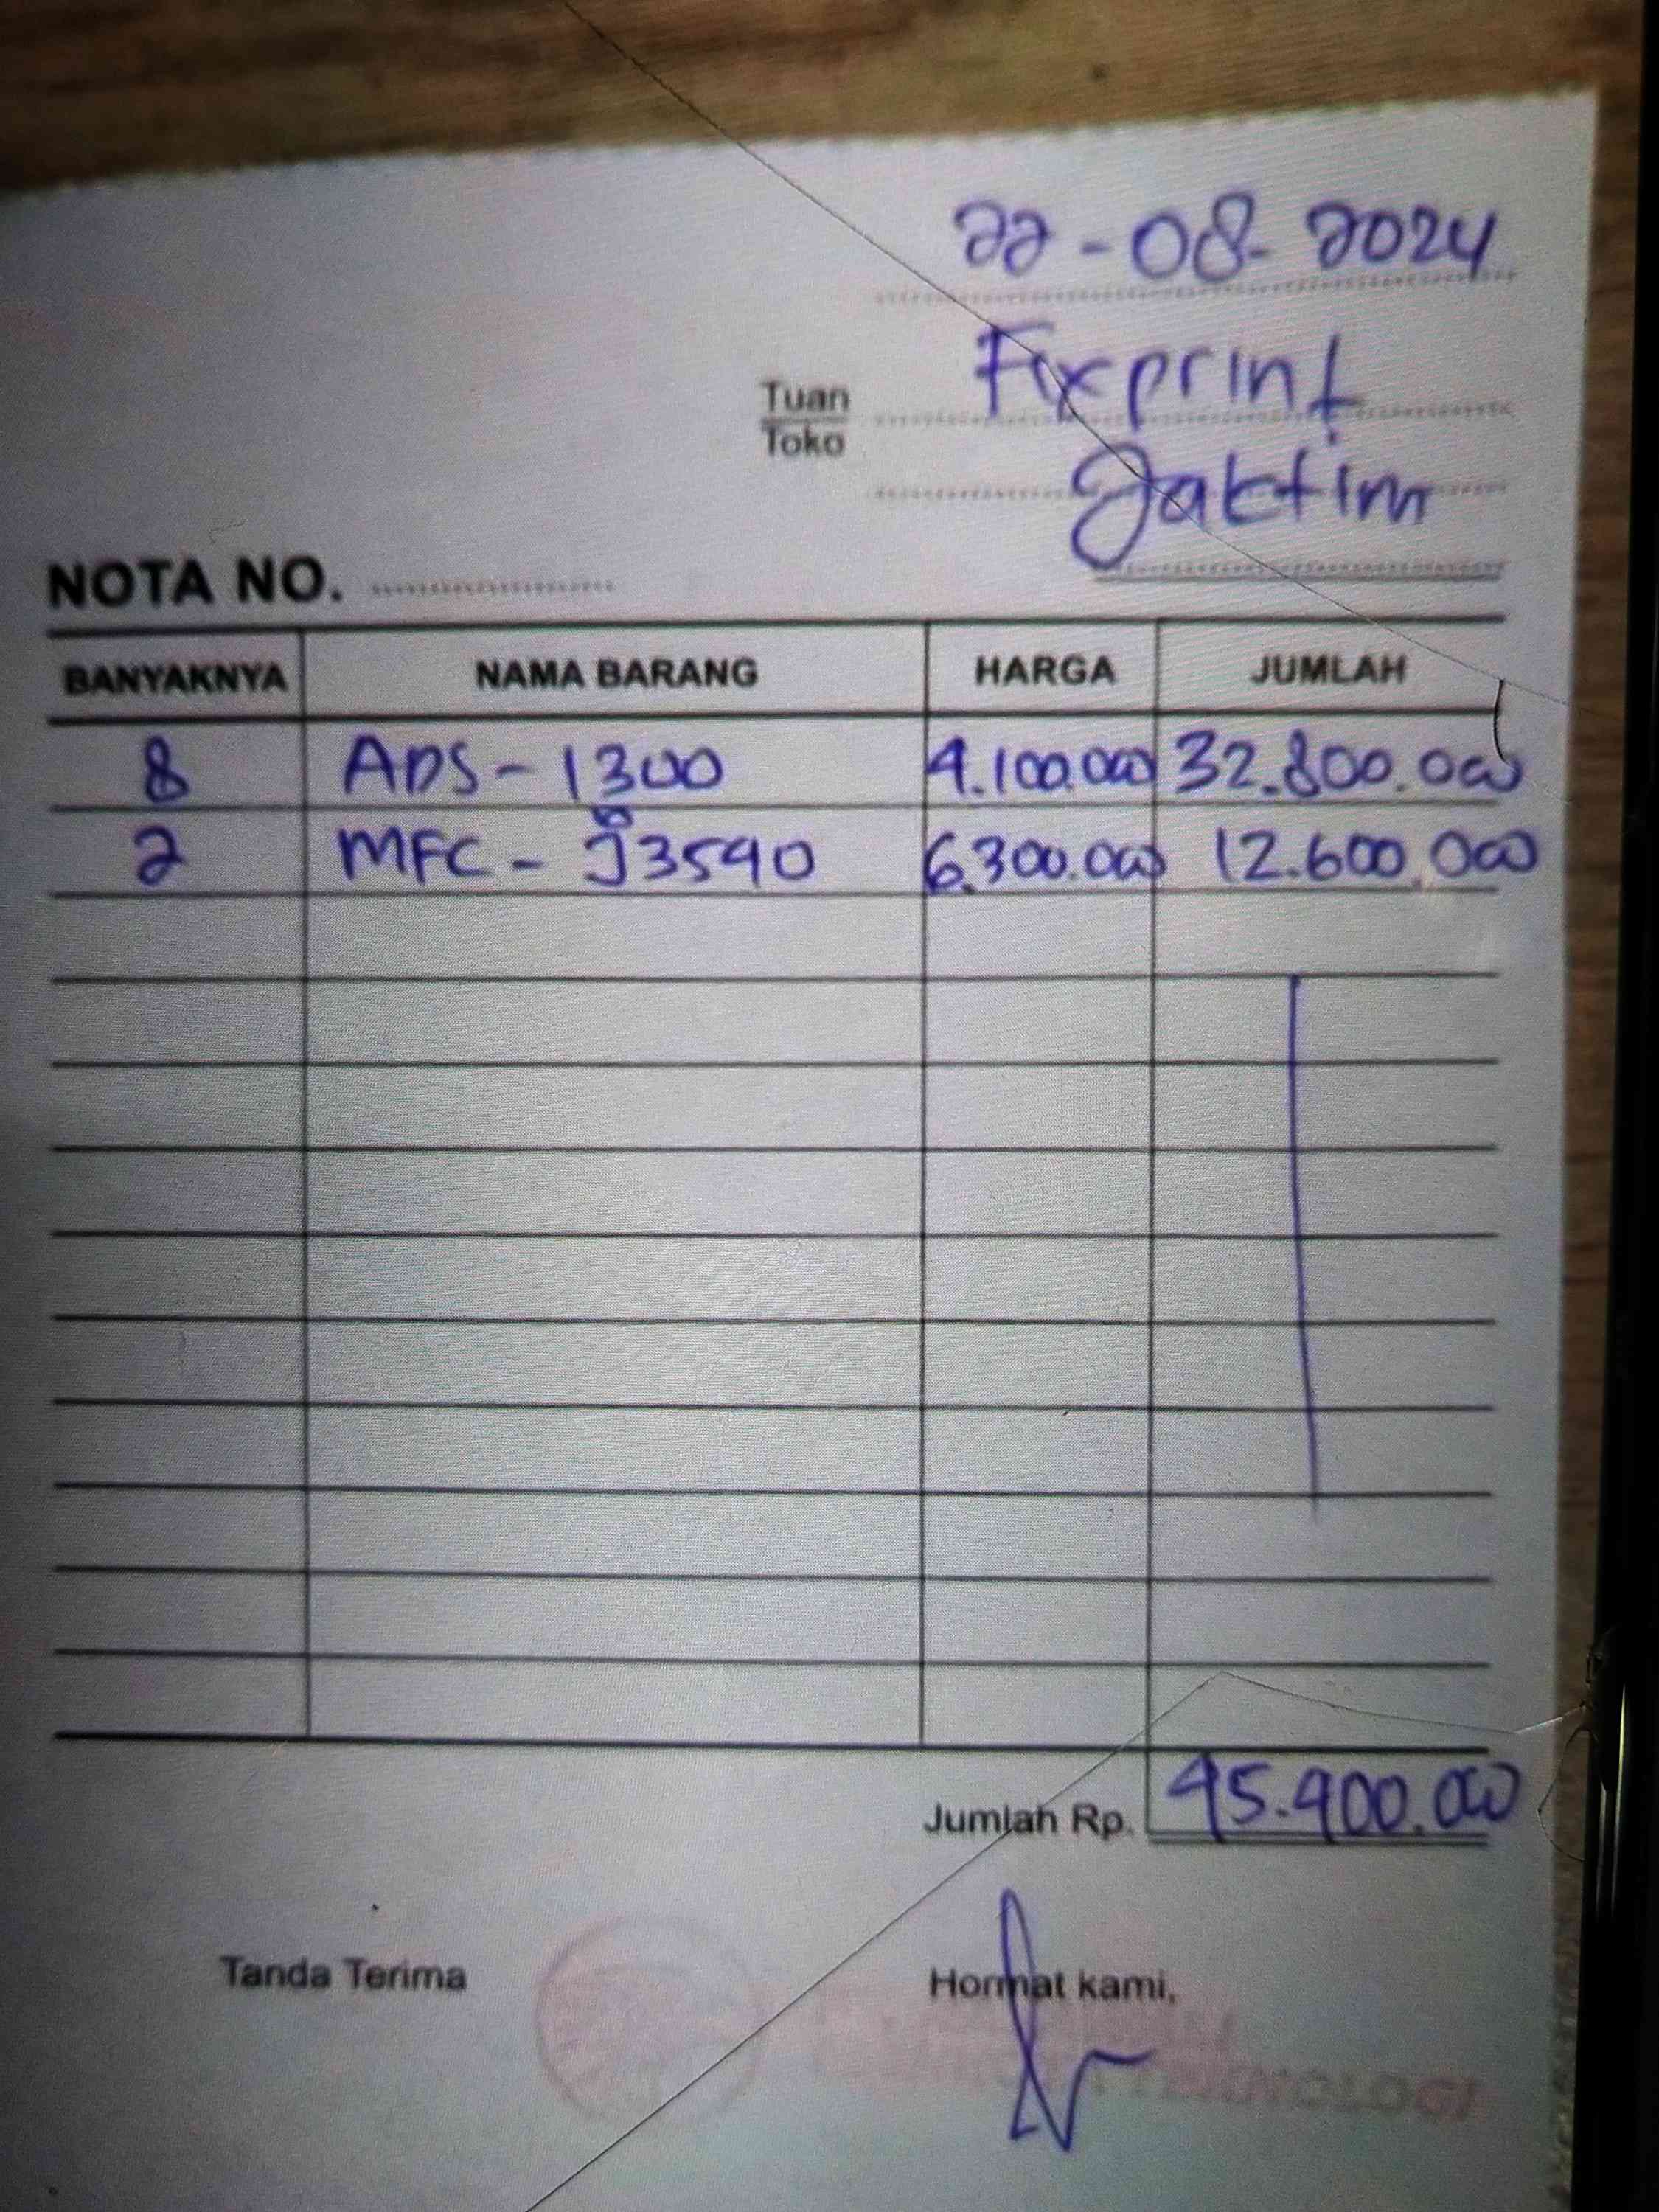 22-08-2024
Tuan
Toko
Fixprint
Jaktim
NOTA NO.
BANYAKNYA NAMA BARANG HARGA JUMLAH
8 ADS-1300 4.100.000 32.800.000
2 MFC-J3540 6.300.000 12.600.000
Jumlah Rp. 45.400.000
Tanda Terima Hormat kami,